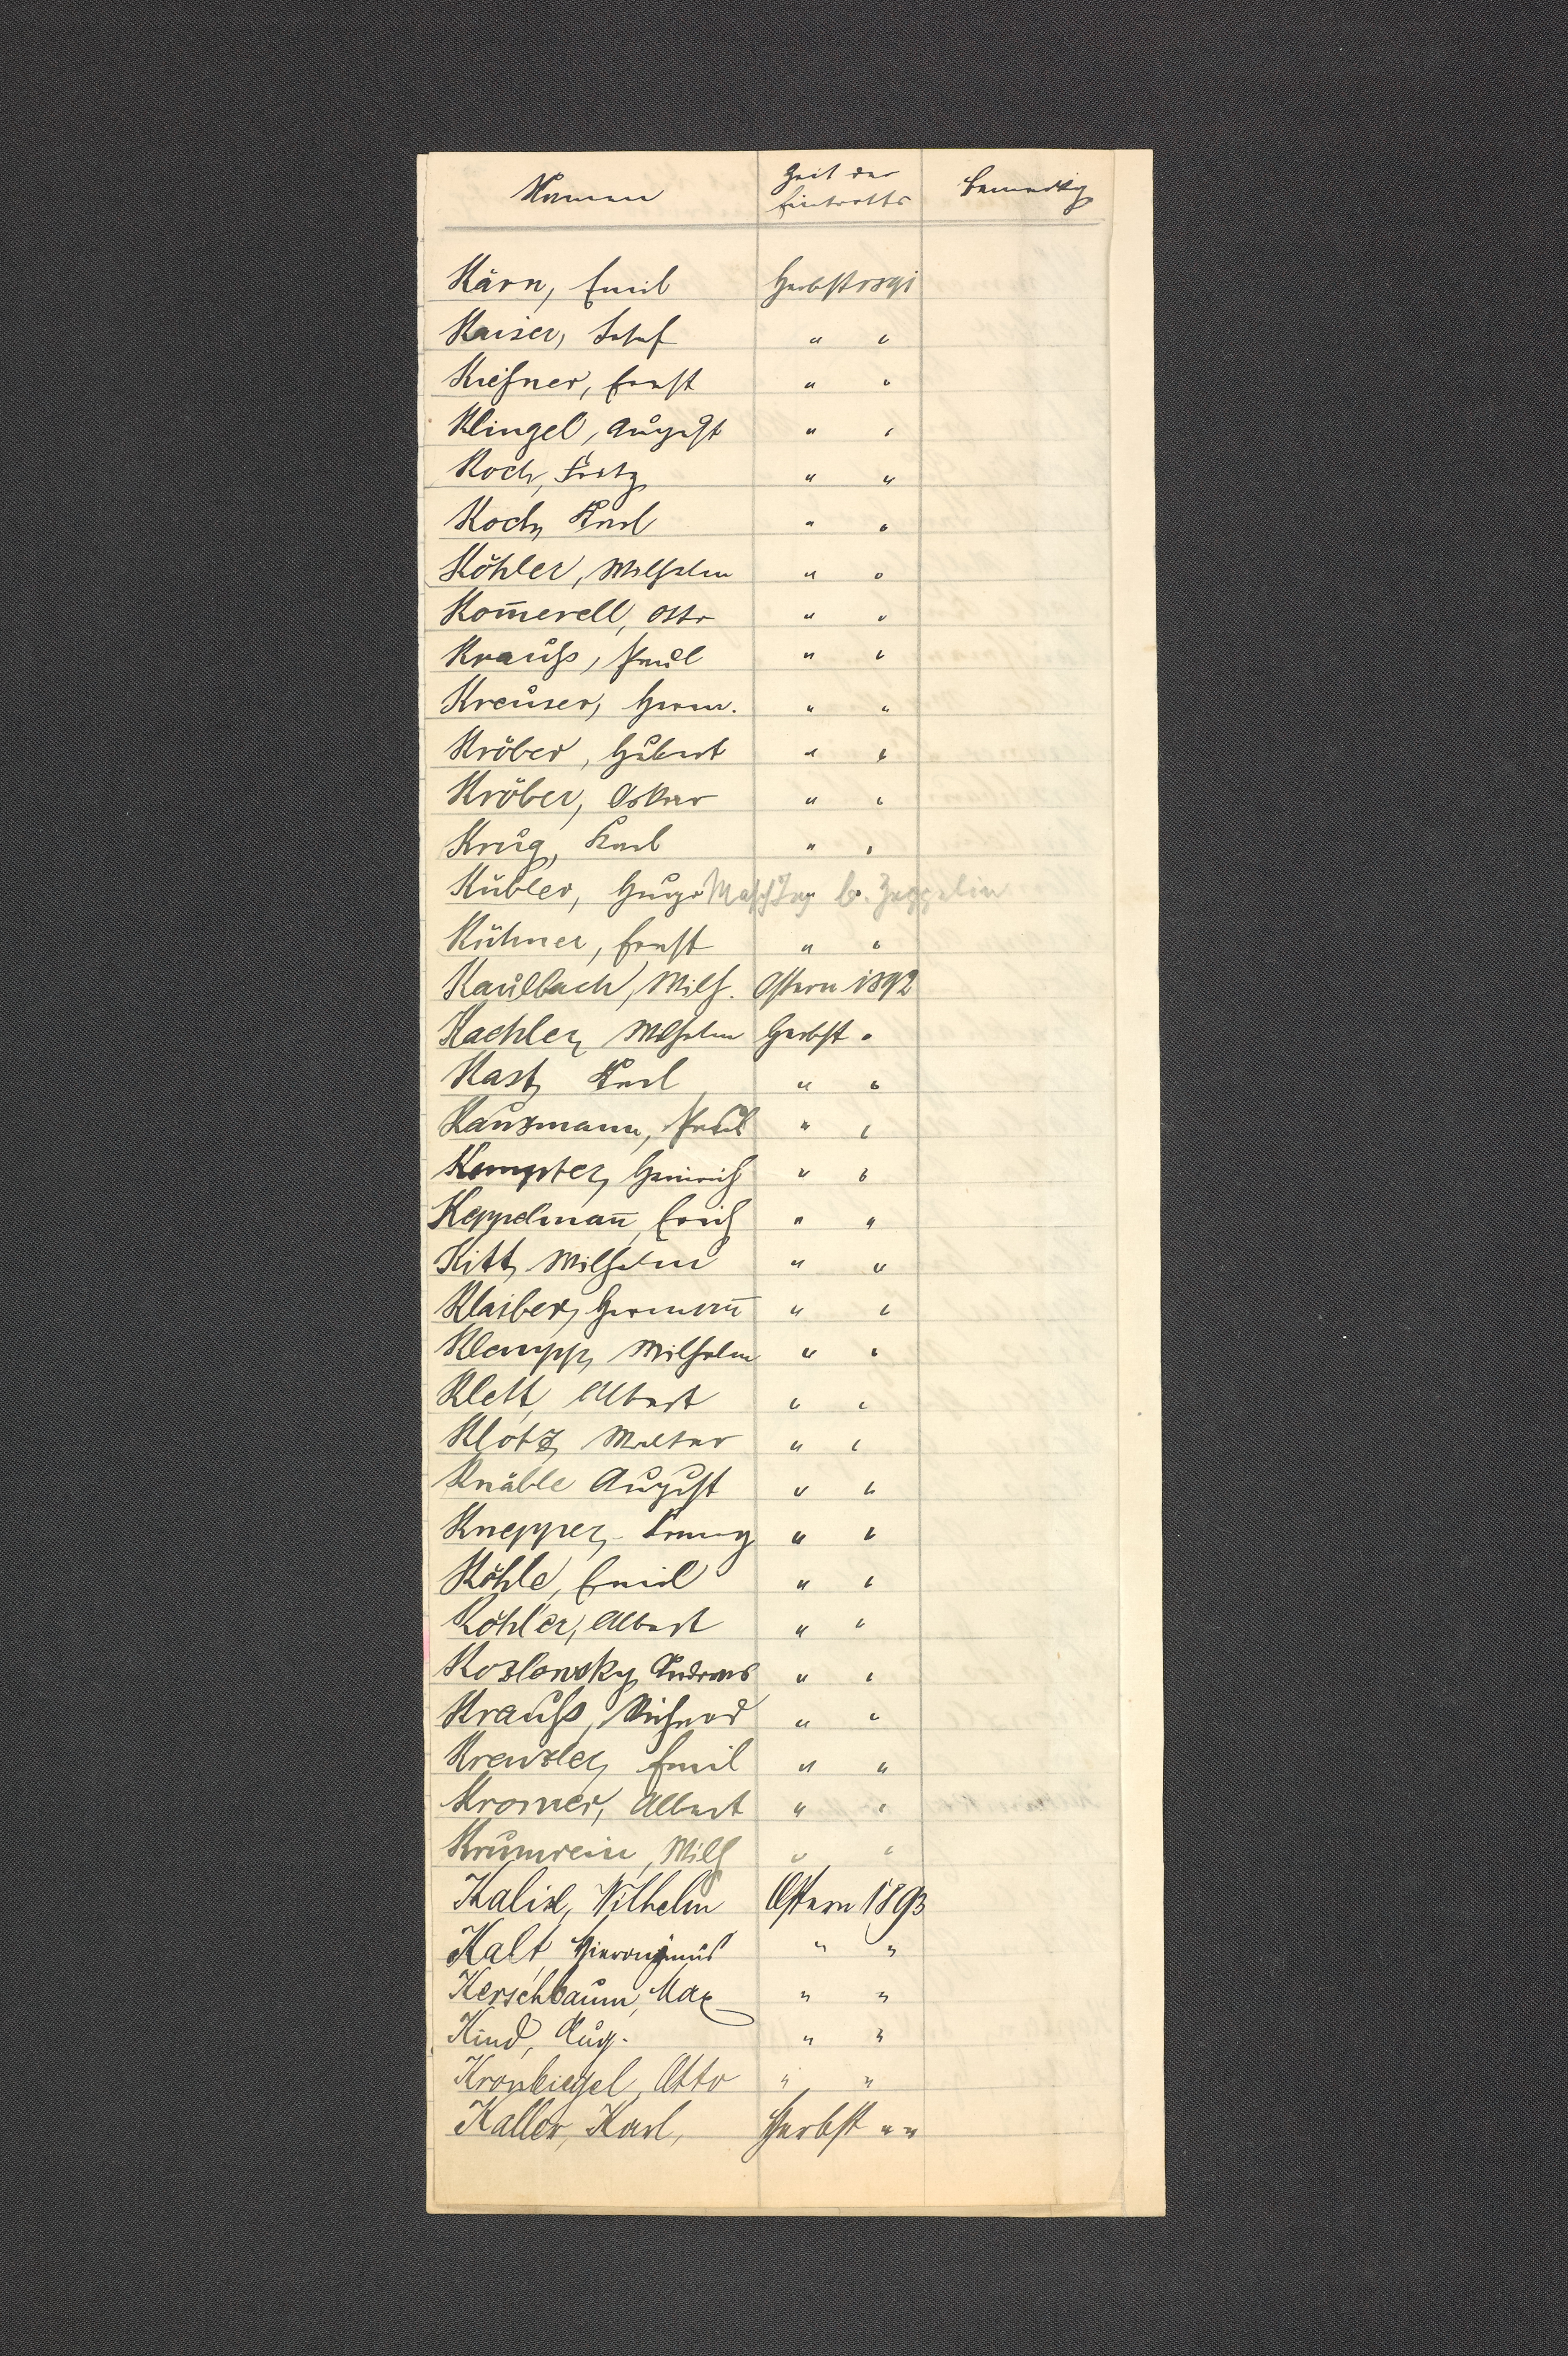 Namen Zeit des Eintritts Bemerkg
Kärn, Emil Herbst 1891
Kaiser, Josef " "
Kießner, Ernst " "
Klingel, August " "
Koch, Fritz " "
Koch, Karl " "
Köhler, Wilhelm " "
Kom̄erell, Otto " "
Krauß, Paul " "
Kreuser, Herm. " "
Kröber, Hubert " "
Kröber, Oskar " "
Krug, Karl " "
Kübler, Hugo " " Masch Ing b. Zeppelin
Kühner, Ernst " "
Kaulbach, Wilh. Ostern 1892
Kaehler, Wilhelm Herbst "
Kast, Karl " "
Kauzmann, Paul " "
Kempter, Heinrich " "
Keppelman̄, Erich " "
Kitt, Wilhelm " "
Klaiber, Herman̄ " "
Klempp, Wilhelm " "
Klett, Albert " "
Klotz, Walter " "
Knäble August " "
Knepper, Franz " "
Köhle, Emil " "
Köhler, Albert " "
Kozlowsky, Andreas " "
Krauß, Richard " "
Krenzler, Emil " "
Kromer, Albert " "
Krumrein, Wilh " "
Kalix, Wilhelm Ostern 1893
Kalt, Hieronymus " "
Kerschbaum, Max " "
Kind, Aug. " "
Kronbiegel, Otto " "
Kaller, Karl, Herbst " "